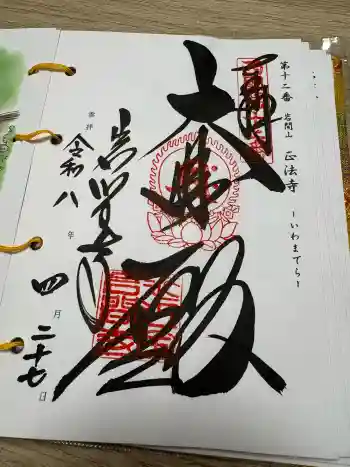 第十二番 岩間山 正法寺 ーいわまでらー
奉拝
大悲殿
岩間寺
令和八年四月二十七日